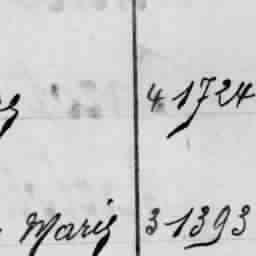 4 1724
Marie 3 1393